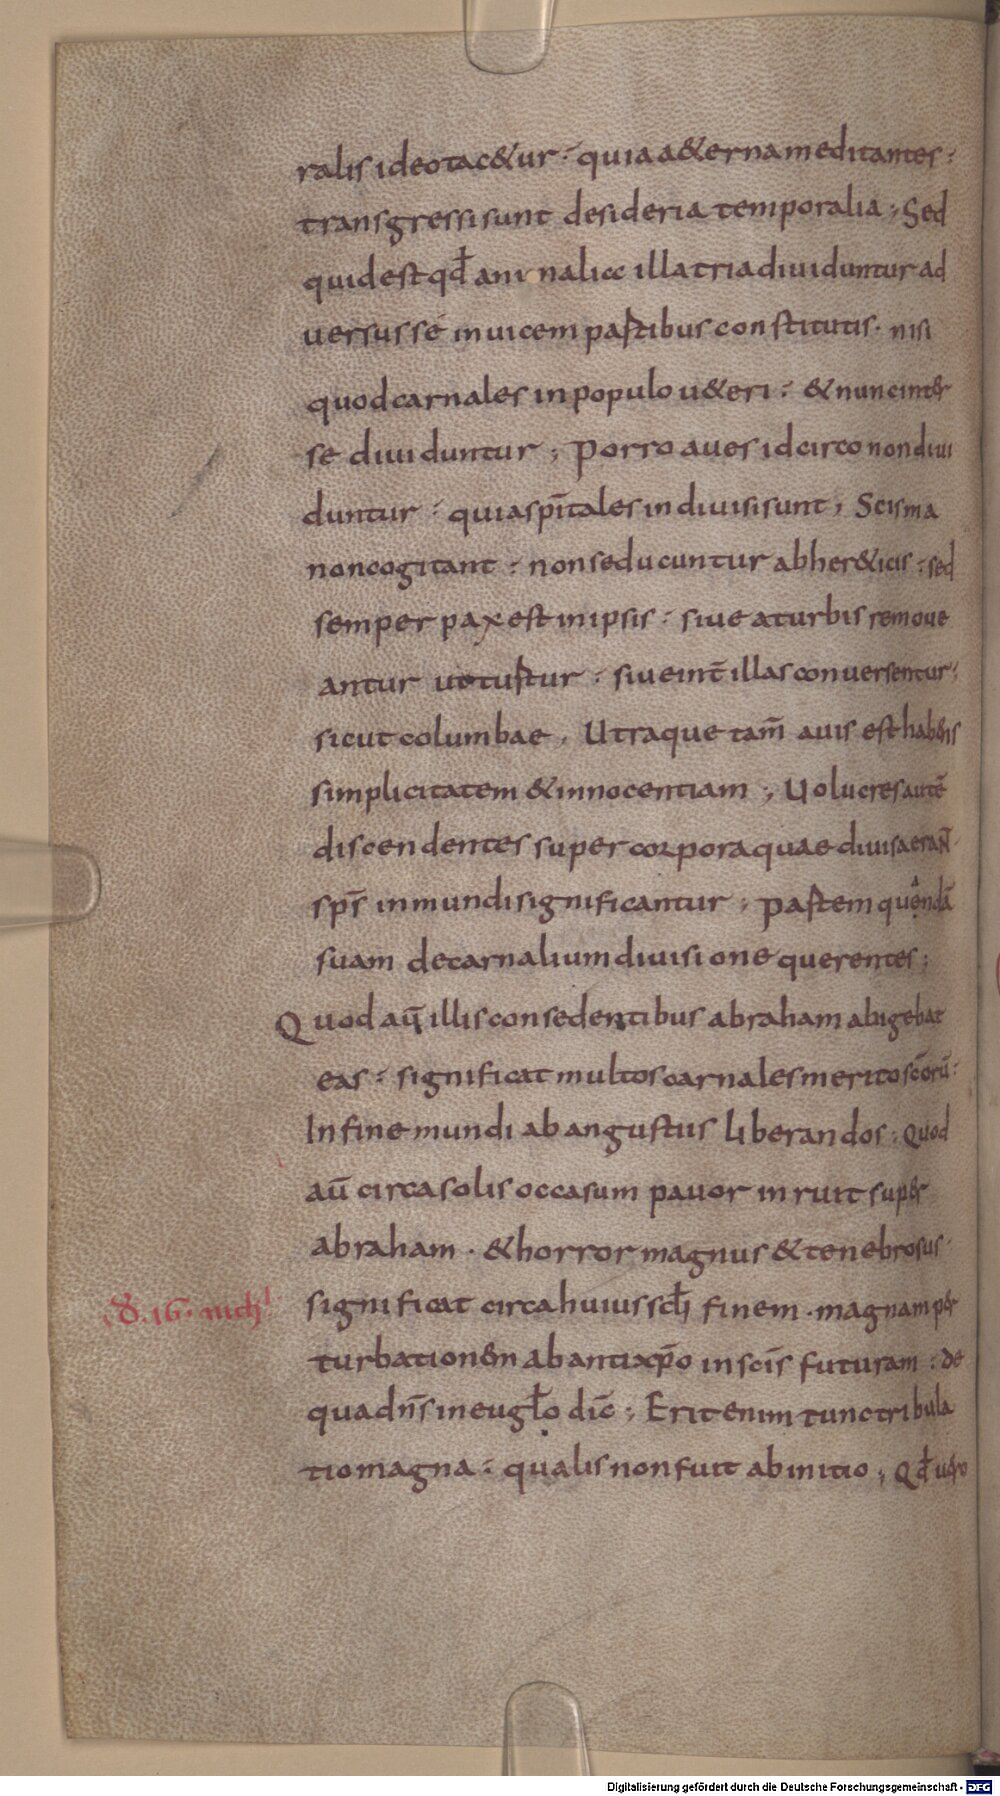 ralis ideo tac&ur · quia a&erna meditantes ·
transgressi sunt desideria temporalia ; Sed
quid est qđ animalia illa tria diuiduntur ad
uersus se inuicem partibus constitutis · nisi
quod carnales in populo u&eri · & nunc inter
se diuiduntur ; Porro aues idcirco non diui
duntur · quia sp̄itales indiuisi sunt ; Scisma
non cogitant · non seducuntur ab her&icis · sed
semper pax est in ipsis · siue a turbis remoue
antur ut turtur · siue int̄ illas conuersentur ·
sicut columbae . Utraque tam̄ auis est habens
simplicitatem & innocentiam ; Uolucres autē
discendentes super corpora quae diuisa erant
sp̄s inmundi significantur ; partem quendā
suam de carnalium diuisione querentes ;
Quod aū illis consedentibus abraham abigebat
eas · significat multos carnales merito sc̄orū ·
In fine mundi ab angustiis liberandos ; Quod
aū circa solis occasum pauor inruit super
abraham · & horror magnus & tenebrosus ·
significat circa huius sclī finem · magnam per
turbationem ab antixp̄o in sc̄is futuram · de
qua dn̄s in eugl̄o dic̄ ; Erit enim tunc tribula
tio magna · qualis non fuit ab initio ; Qđ uero
Digitalisierung gefördert durch die Deutsche Forschungsgemeinschaft - DFG